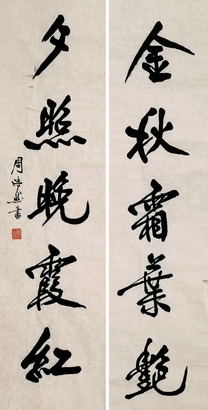 金秋霜葉艷
夕照晚霞紅
周時君書